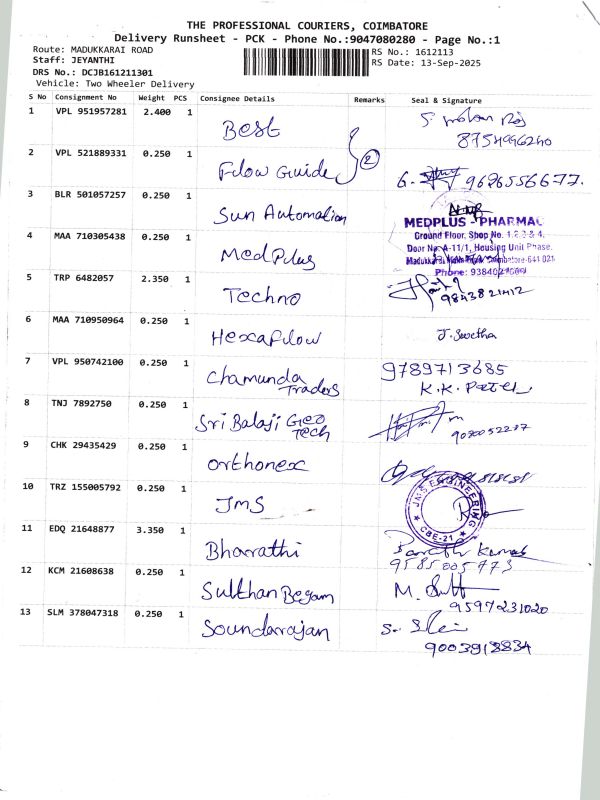 THE PROFESSIONAL COURIERS, COIMBATORE
Delivery Runsheet - PCK - Phone No.:9047080280 - Page No.:1
Route: MADUKKARAI ROAD
Staff: JEYANTHI
DRS No.: DCJB161211301
Vehicle: Two Wheeler Delivery
RS No.: 1612113
RS Date: 13-Sep-2025
S No Consignment No Weight PCS Consignee Details Remarks Seal & Signature
1 VPL 951957281 2.400 1 Best
8754996240
2 VPL 521889331 0.250 1 Flow Guide 2 G. 9626556677.
3 BLR 501057257 0.250 1 Sun Automation
MEDPLUS PHARMAC
Ground Floor, Shop No. 1,2,3 & 4,
Door No. A-11/1, Housing Unit Phase,
Coimbatore-641 021
Phone:
4 MAA 710305438 0.250 1 MedPlus
5 TRP 6482057 2.350 1 Techno
9843821412
6 MAA 710950964 0.250 1 Hexaflow J. Swetha
7 VPL 950742100 0.250 1 Chamunda Traders 9789713685
K.K. Patel
8 TNJ 7892750 0.250 1 Sri Balaji Geo Tech
9 CHK 29435429 0.250 1 Orthonex
10 TRZ 155005792 0.250 1 JMS
JMS ENGINEERING ★ CBE-21 ★
11 EDQ 21648877 3.350 1 Bharathi Barath Kumar
9585005773
12 KCM 21608638 0.250 1 Sulthan Begam M.
9597231020
13 SLM 378047318 0.250 1 Soundarajan S.
9003913834